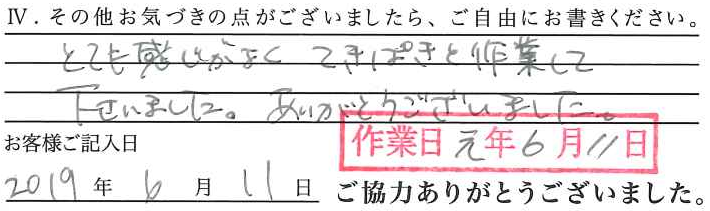 Ⅳ．その他お気づきの点がございましたら、ご自由にお書きください。
とても感じがよく てきぱきと作業して
下さいました。ありがとうございました。
お客様ご記入日
作業日 元年6月11日
2019年6月11日
ご協力ありがとうございました。